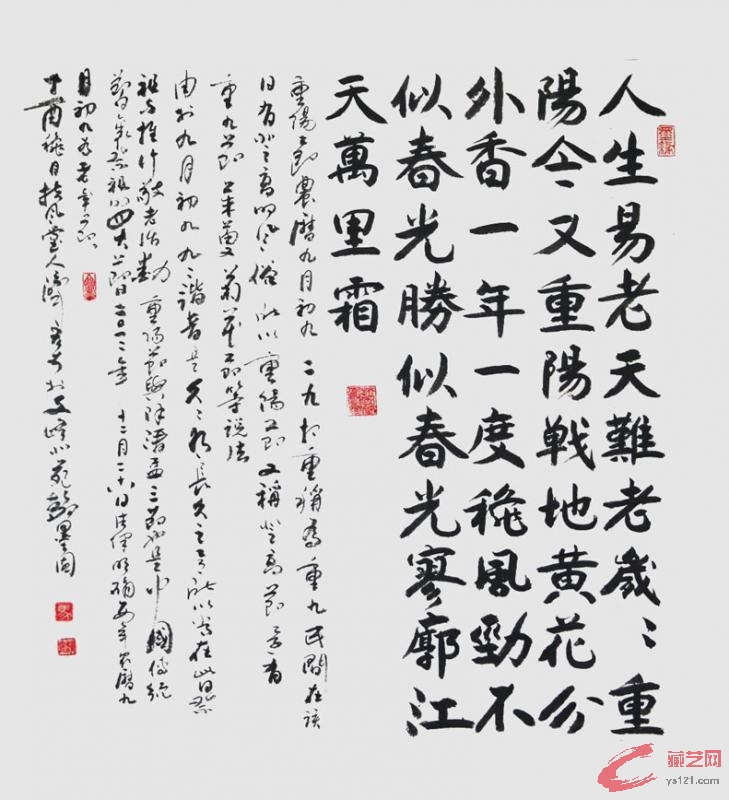 人生易老天難老歲〻重
陽今又重陽戰地黄花分
外香一年一度穐風勁不
似春光勝似春光寥廓江
天萬里霜
重陽節農曆九月初九二九相重稱為重九民間在該
日有登高的風俗所以重陽節又稱登高節還有
重九節茱萸菊花節等說法
由於九月初九九諧音是久久有長久之意所以常在此日祭
祖與推行敬老活動重陽節與除清盂三節也是中國傳統
節日祭祖的四大節日二〇一二年十二月二十八日法律明確每年農曆九
月初九為老年節
丁酉穐日
藏艺网
ys121.com